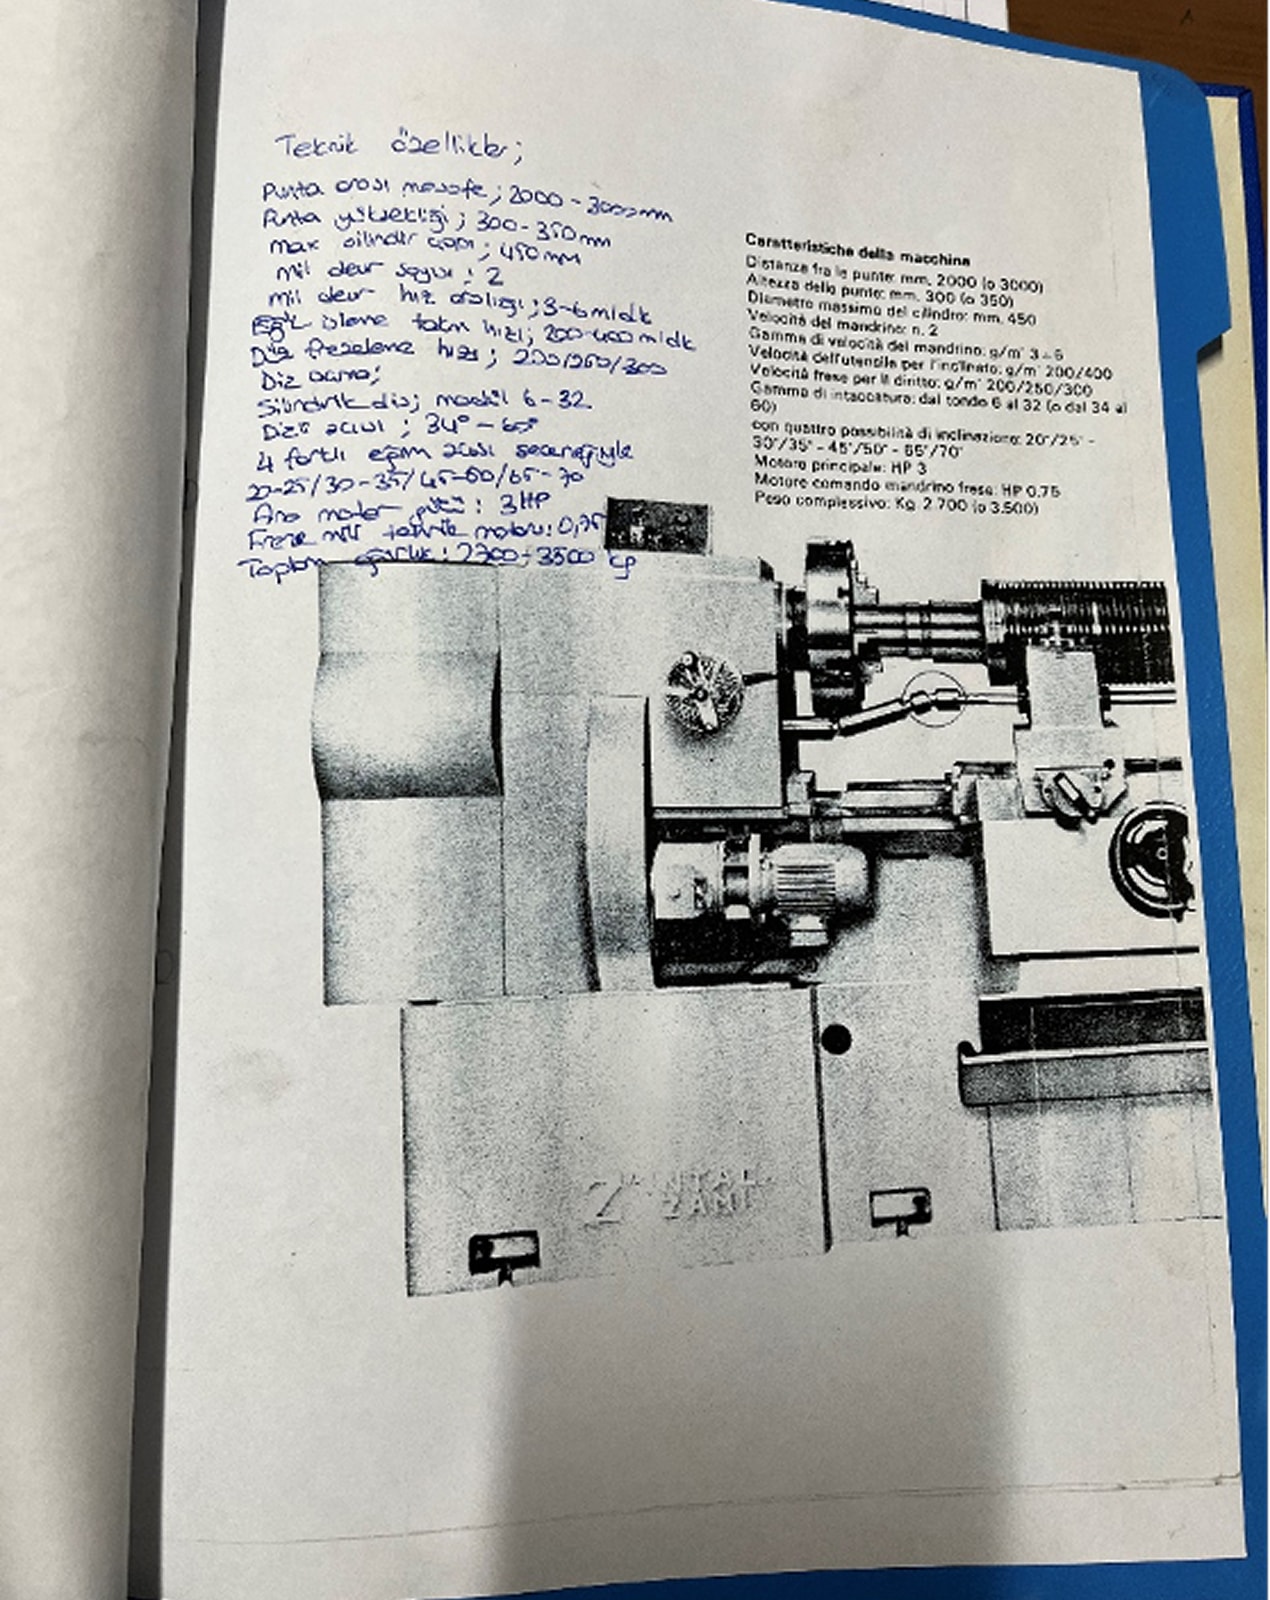 Teknik özellikler;
Punta arası mesafe; 2000-3000mm
Punta yüksekliği; 300-350mm
max silindir çapı; 450mm
mil devir sayısı; 2
mil devir hız aralığı; 3-6 m/dk
Eğik işleme takım hızı; 200-400 m/dk
Düz frezeleme hızı; 200/250/300
Diz
Silindirik diş; modül 6-32
açısı; 34°-60°
4 farklı eğim açısı seçeneğiyle
20-25/30-35/45-50/65-70
Ana motor gücü: 3HP
Freze mili tahrik motoru: 0,75
Toplam ağırlık: 2700-3500 kg
Caratteristiche della macchina
Distanza fra le punte: mm. 2000 (o 3000)
Altezza delle punte: mm. 300 (o 350)
Diametro massimo del cilindro: mm. 450
Velocità del mandrino: n. 2
Gamma di velocità del mandrino: g/m' 3÷6
Velocità dell'utensile per l'inclinato: g/m' 200/400
Velocità frese per il diritto: g/m' 200/250/300
Gamma di intaccatura: dal tondo 6 al 32 (o dal 34 al
60)
con quattro possibilità di inclinazione: 20°/25° -
30°/35° - 45°/50° - 65°/70°
Motore principale: HP 3
Motore comando mandrino frese: HP 0.75
Peso complessivo: Kg. 2.700 (o 3.500)